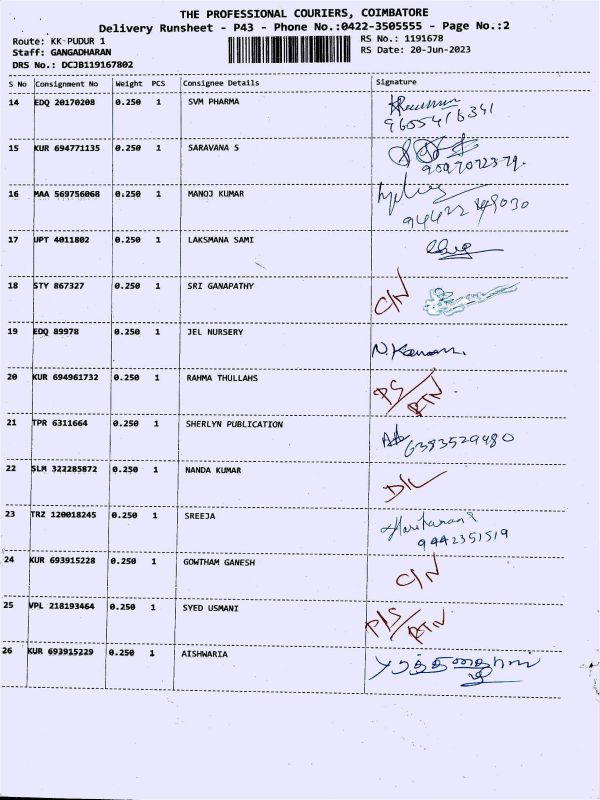 THE PROFESSIONAL COURIERS, COIMBATORE
Delivery Runsheet - P43 - Phone No.:0422-3505555 - Page No.:2
Route: KK-PUDUR 1
RS No.: 1191678
Staff: GANGADHARAN
RS Date: 20-Jun-2023
DRS No.: DCJB119167802
S No Consignment No Weight PCS Consignee Details Signature
14 EDQ 20170208 0.250 1 SVM PHARMA
9655416341
15 KUR 694771135 0.250 1 SARAVANA S
9597072379.
16 MAA 569756068 0.250 1 MANOJ KUMAR
17 UPT 4011802 0.250 1 LAKSMANA SAMI
18 STY 867327 0.250 1 SRI GANAPATHY C/N
19 EDQ 89978 0.250 1 JEL NURSERY
N. Kannan.
20 KUR 694961732 0.250 1 RAHMA THULLAHS P/S/RTN
21 TPR 6311664 0.250 1 SHERLYN PUBLICATION
6383529480
22 SLM 322285872 0.250 1 NANDA KUMAR D/L
23 TRZ 120018245 0.250 1 SREEJA
9442351519
24 KUR 693915228 0.250 1 GOWTHAM GANESH C/N
25 VPL 218193464 0.250 1 SYED USMANI P/S/RTN
26 KUR 693915229 0.250 1 AISHWARIA